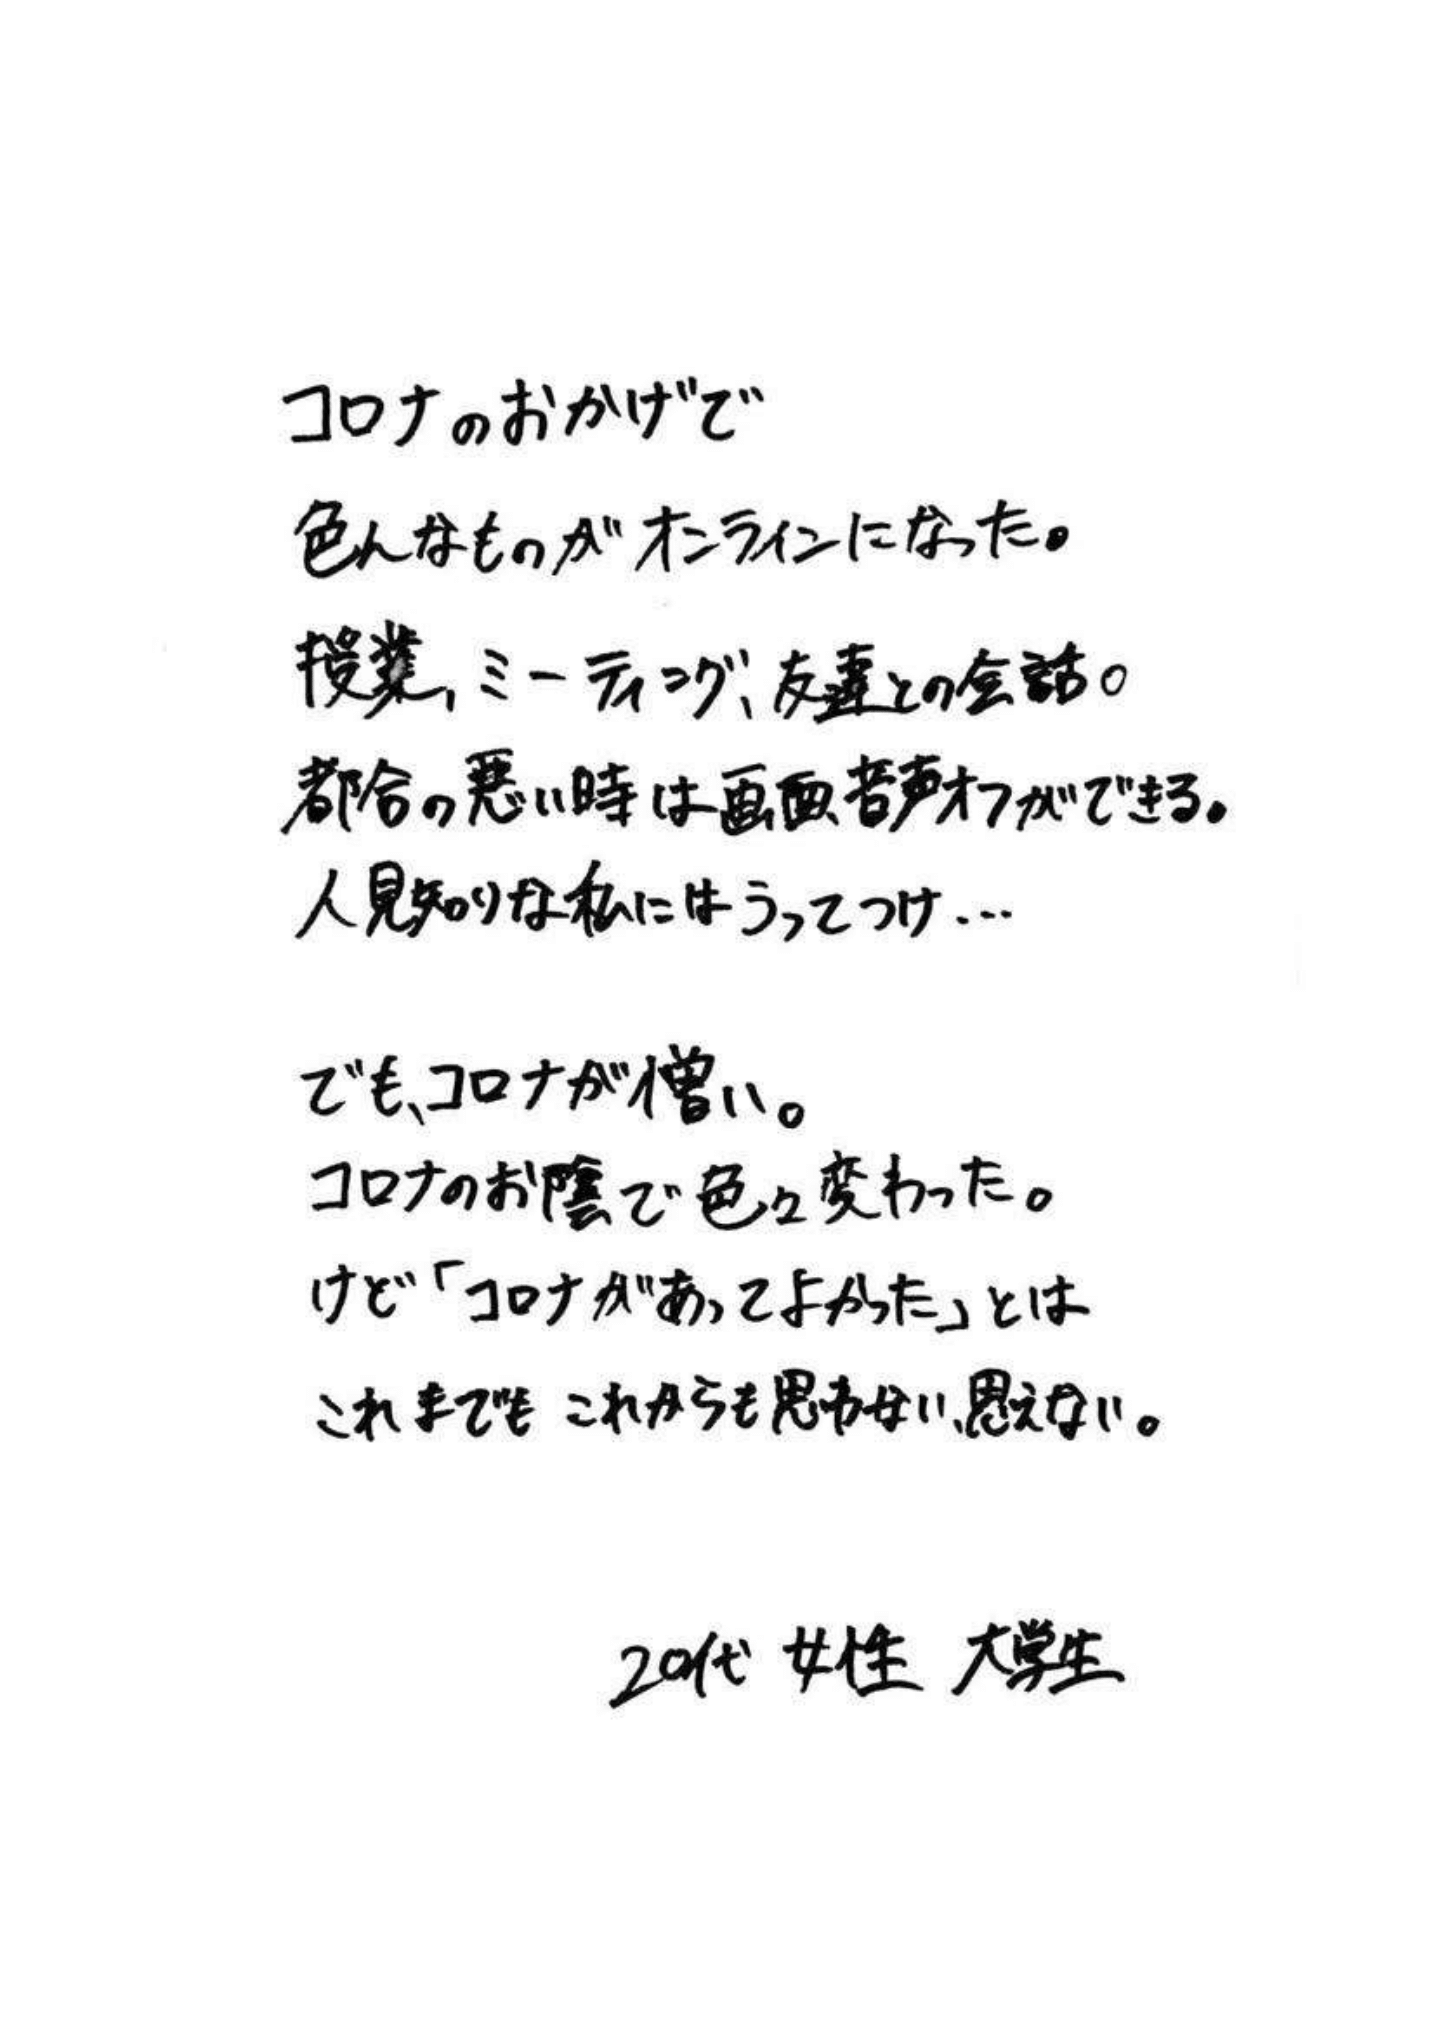 コロナのおかげで
色んなものがオンラインになった。
授業、ミーティング、友達との会話。
都合の悪い時は画面、音声オフができる。
人見知りな私にはうってつけ…
でも、コロナが憎い。
コロナのお陰で色々変わった。
けど「コロナがあってよかった」とは
これまでも これからも思わない、思えない。
20代 女性 大学生